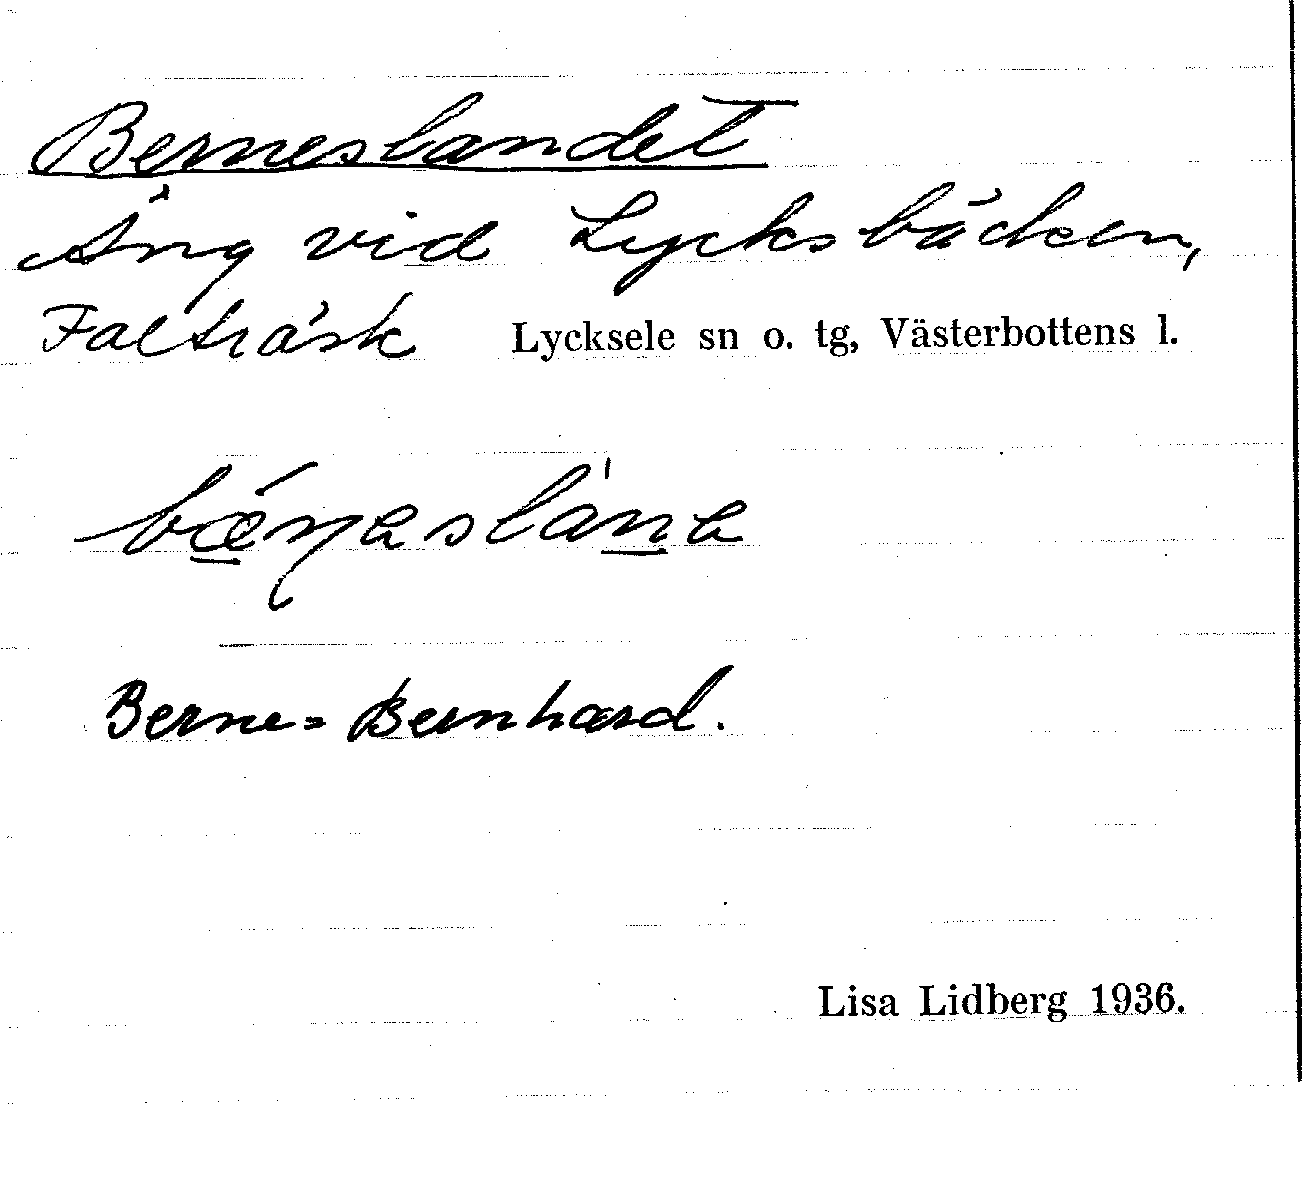 Berneslandet
Äng vid Lycksbäcken,
Falträsk Lycksele sn o. tg, Västerbottens l.
Berne = Bernhard.
Lisa Lidberg 1936.